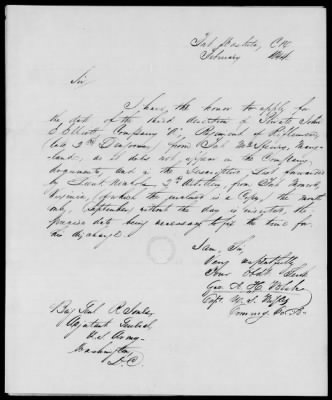 February 1844.
Sir,
I have the honor to apply for
the date of the third enlistment of Private John
Elliott Company "B", Regiment of Riflemen
(late 2nd Dragoons) from Fort McHenry, Mary-
land; as it does not appear in the Company
documents, and in the Descriptive List forwarded
by Lieut 3rd Artillery, from Fort Monroe,
Virginia, (of which the enclosed is a Copy,) the month
only, September, without the day is inserted, the
precise date being necessary to fix the time for
his discharge.
I am, Sir,
Very respectfully
Your Obdt. Servt.
Geo. A. H. Blake
Capt.
Comdg. Co. B.
Brig Genl R. Jones,
Adjutant General,
U.S. Army,
Washington,
D.C.